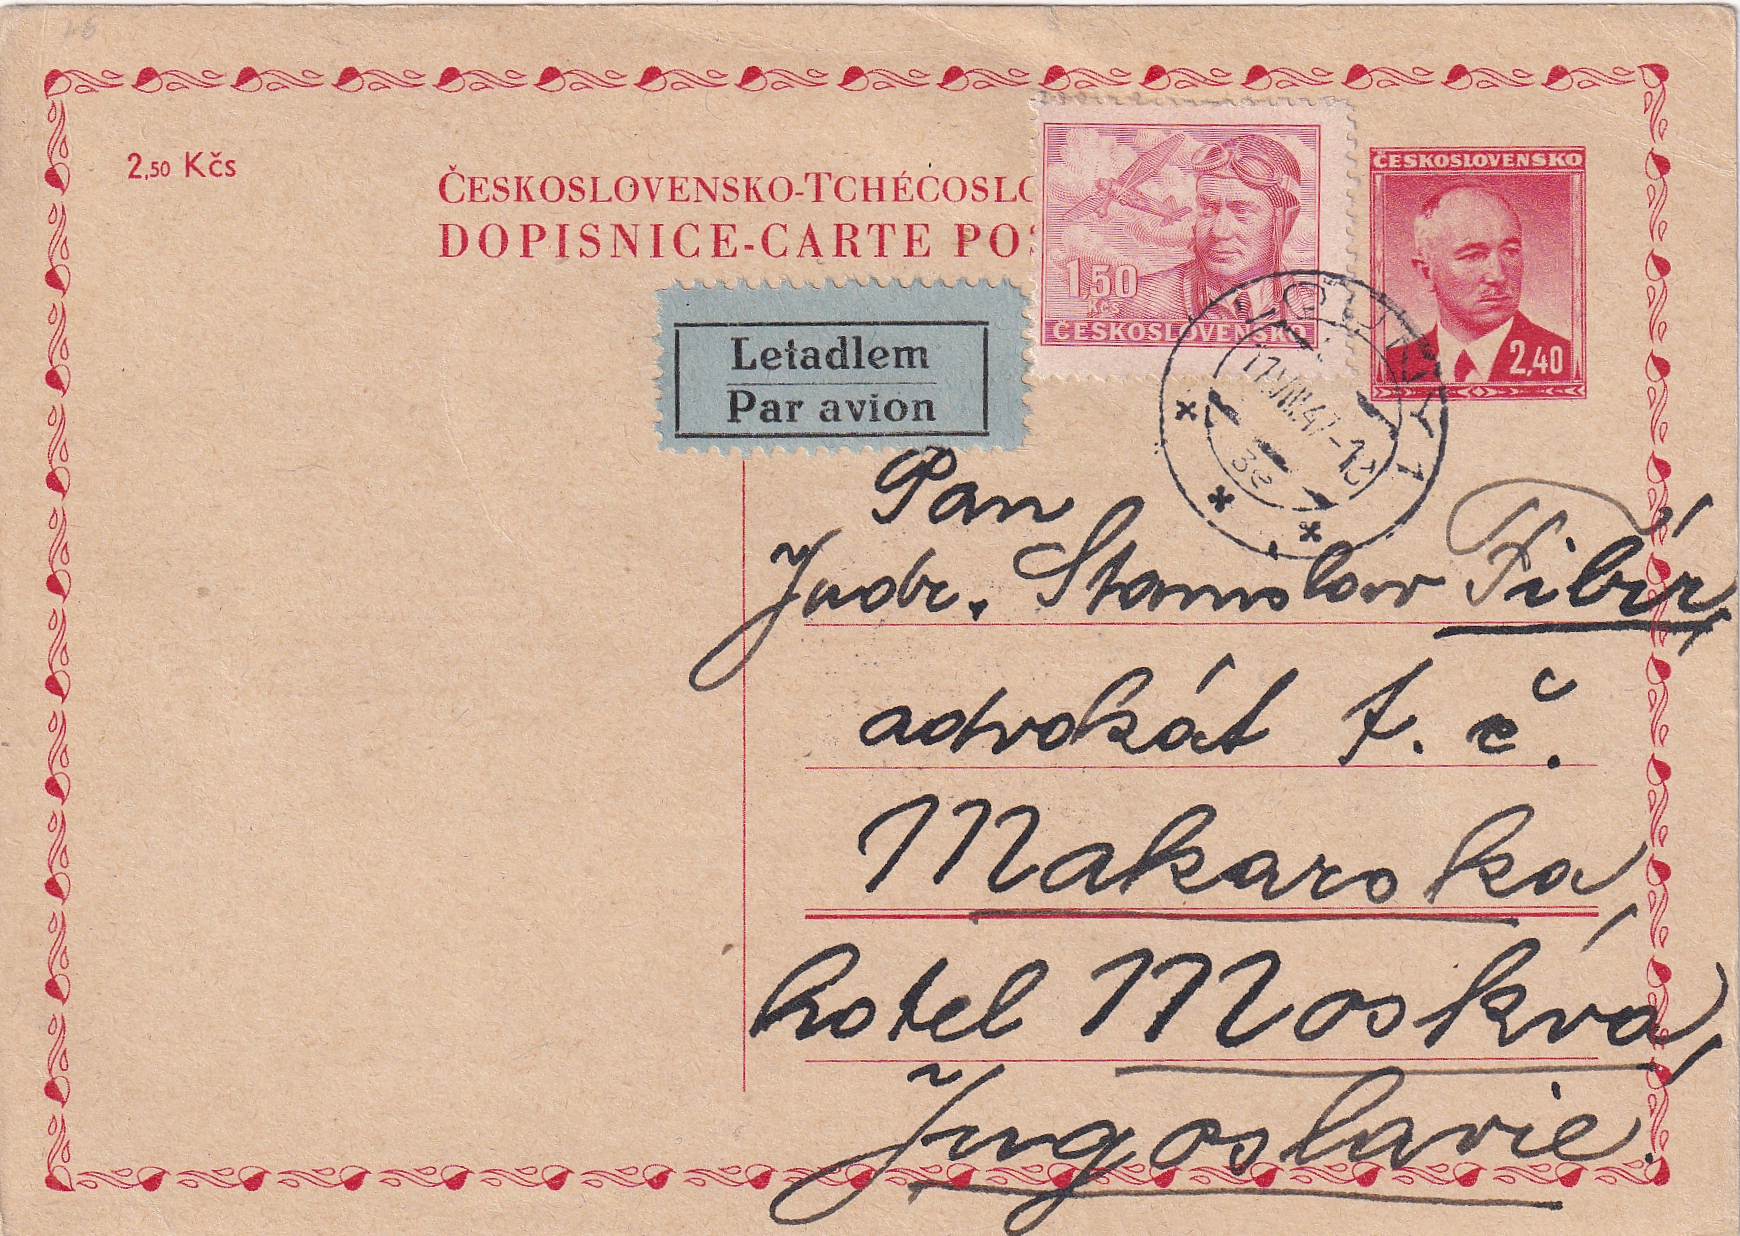 2,50 Kčs
ČESKOSLOVENSKO-TCHÉCOSLO
DOPISNICE-CARTE POS
1,50
Kčs
ČESKOSLOVENSKO
ČESKOSLOVENSKO
2,40
Letadlem
Par avion
LOUNY 1
17.VIII.47-18
3e
Pan
Judr. Stanislav
advokát t. č.
Makarska
hotel Moskva,
Jugoslavie.